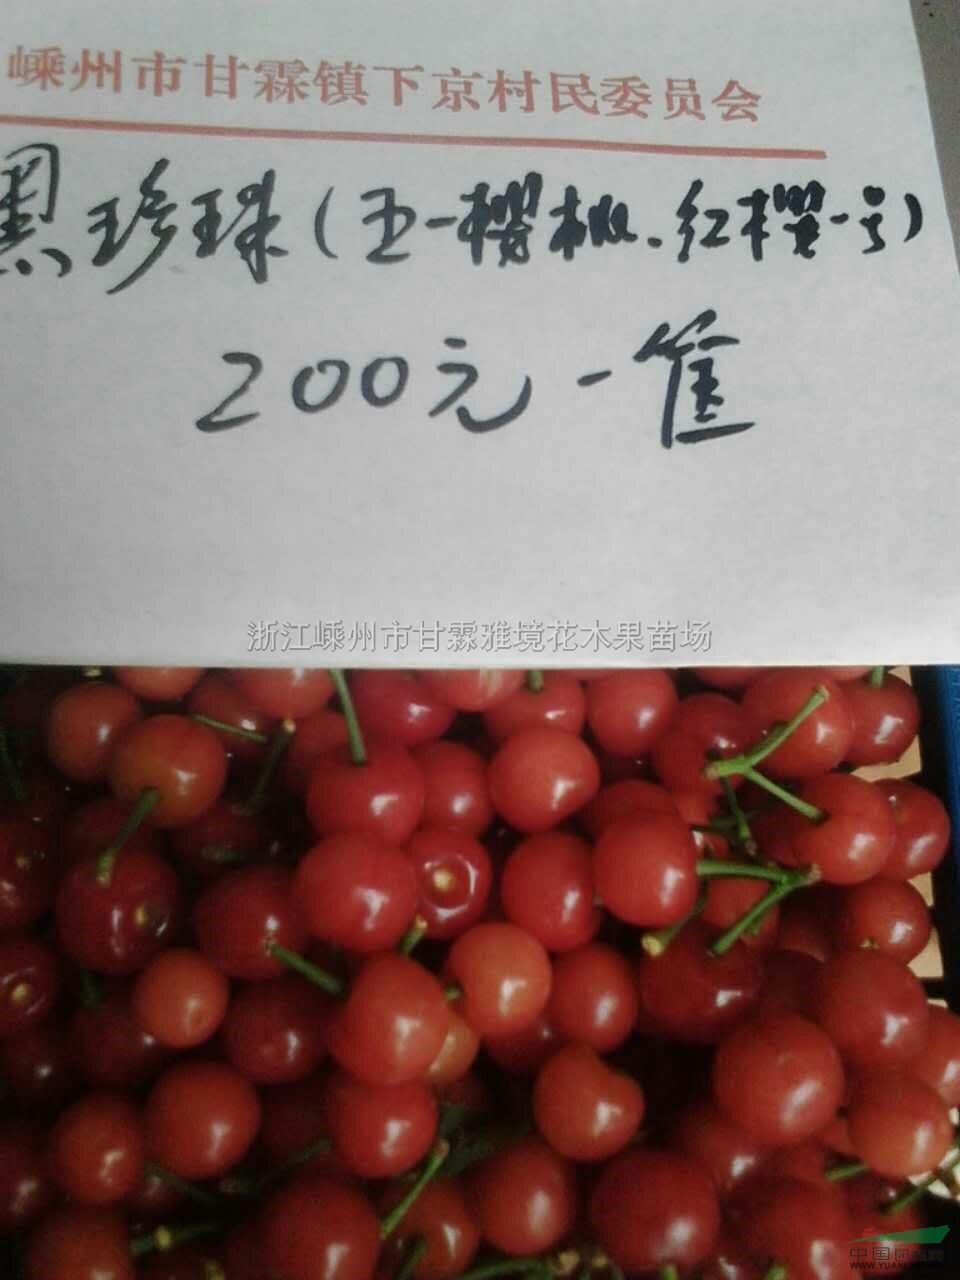 嵊州市甘霖镇下京村民委员会
黑珍珠(五一樱桃、红樱一号)
200元一筐
浙江嵊州市甘霖雅境花木果苗场
中国园林网